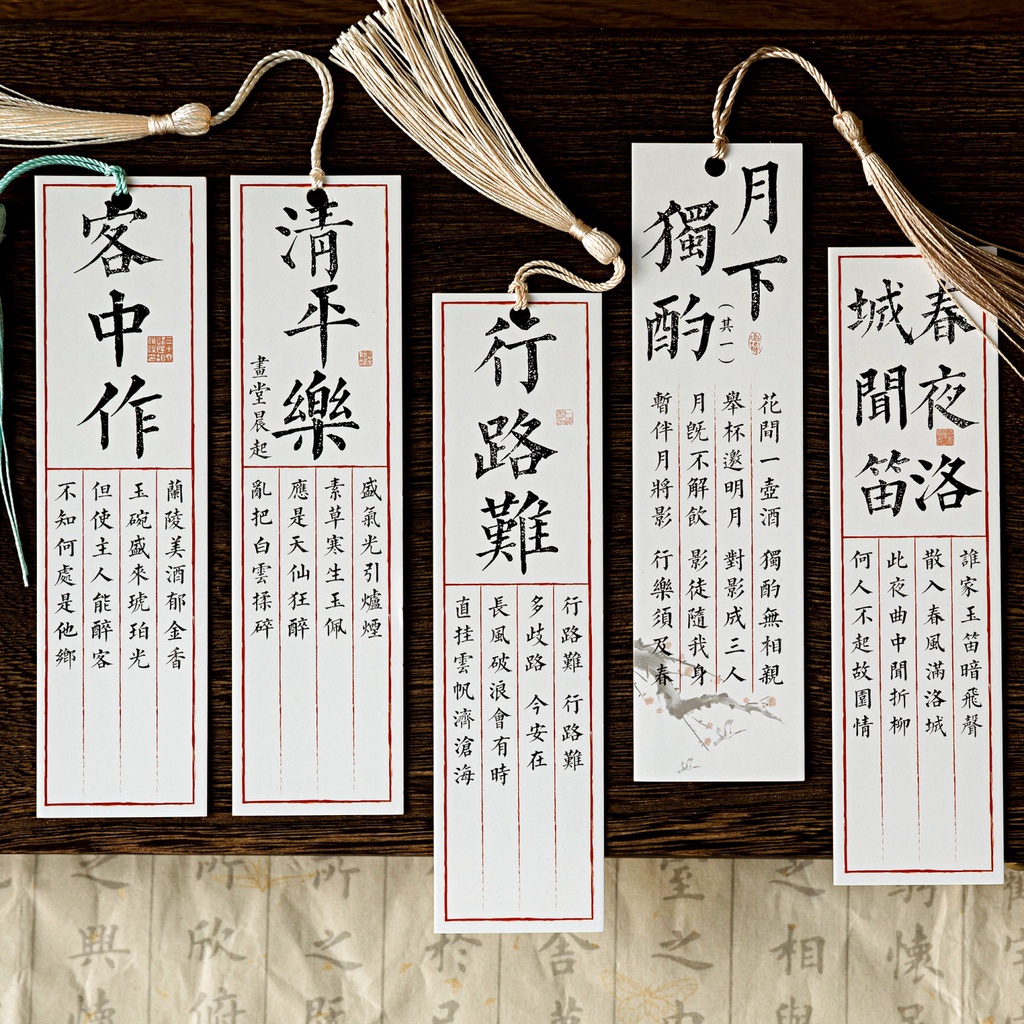 客中作
蘭陵美酒郁金香
玉碗盛來琥珀光
但使主人能醉客
不知何處是他鄉
清平樂
畫堂晨起
盛氣光引爐煙
素草寒生玉佩
應是天仙狂醉
亂把白雲揉碎
行路難
行路難 行路難
多歧路 今安在
長風破浪會有時
直挂雲帆濟滄海
月下
獨酌
(其一)
花間一壺酒 獨酌無相親
舉杯邀明月 對影成三人
月既不解飲 影徒隨我身
暫伴月將影 行樂須及春
春夜洛
城聞笛
誰家玉笛暗飛聲
散入春風滿洛城
此夜曲中聞折柳
何人不起故園情
懷
之相與
室之
舍
於
所之既
所欣俯
之興懷